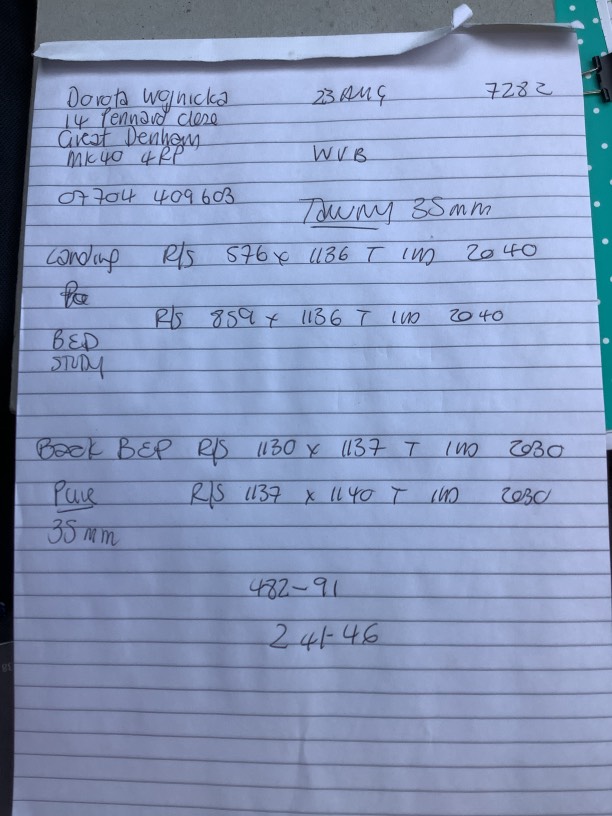 Dorota Wojnicka 23 AUG 7282
14 Pennard close
Great Denham
MK40 4RP WVB
07704 409603
Tawny 35mm
Landing R/S 576 x 1136 T IW 2040
R/S 859 x 1136 T IW 2040
BED
STUDY
Back BED R/S 1130 x 1137 T IW 2030
Pure R/S 1137 x 1140 T IW 2030
35mm
482-91
241-46